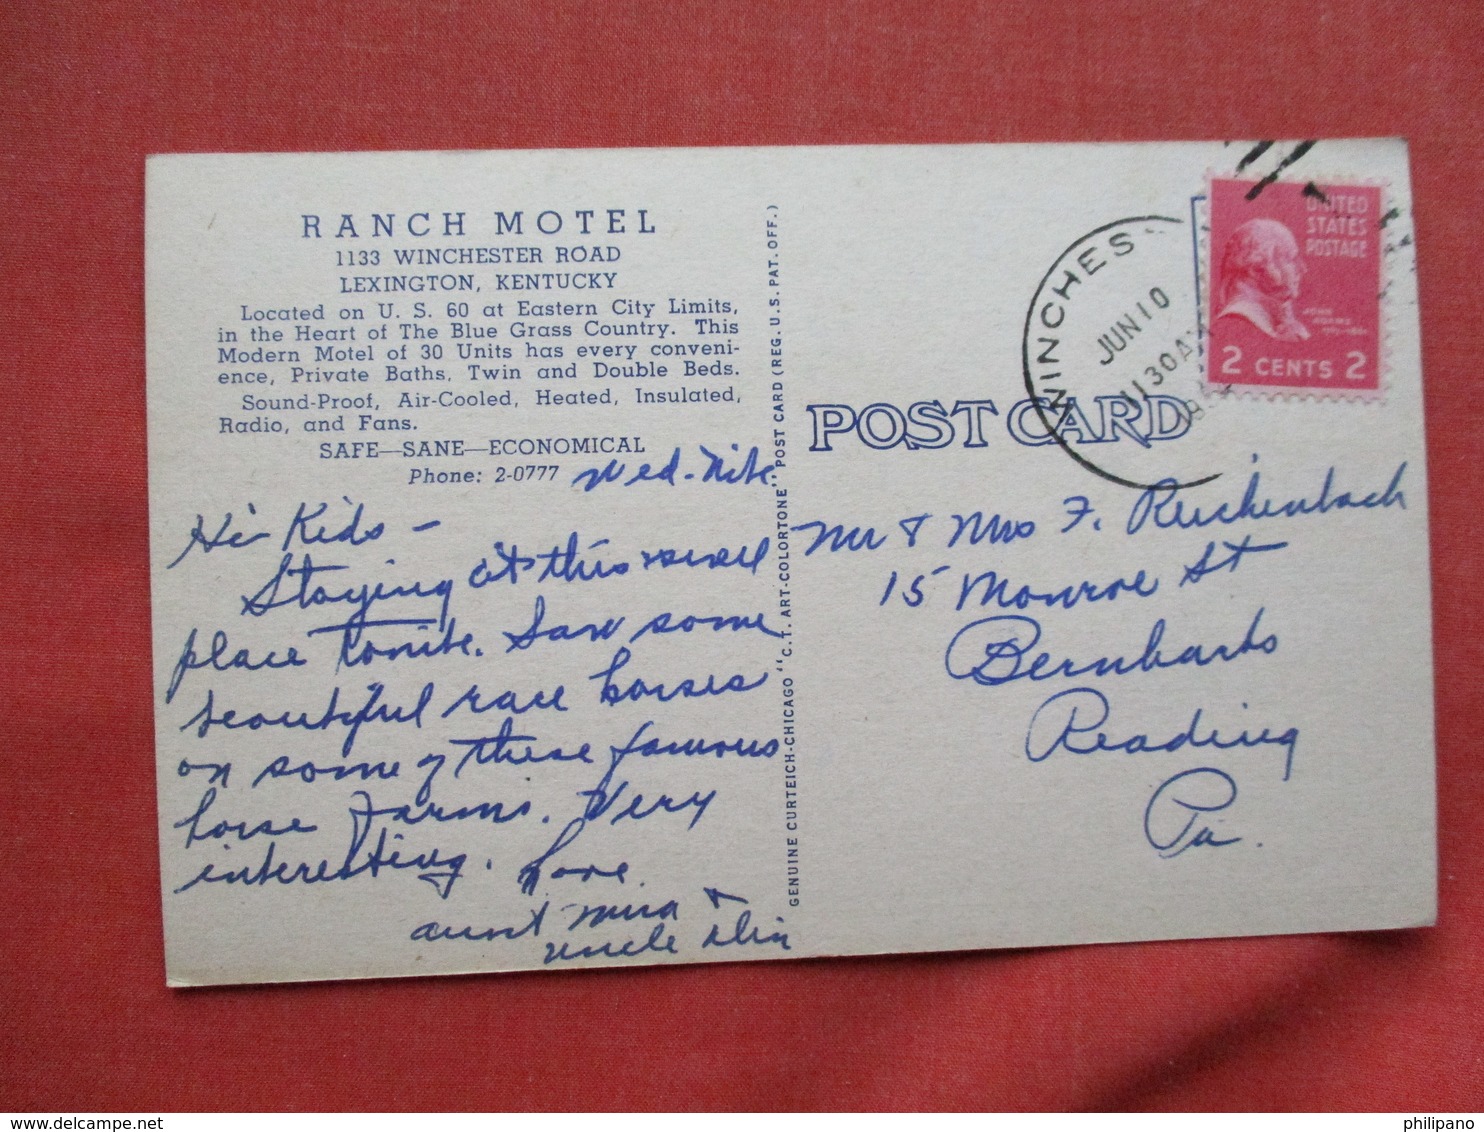 RANCH MOTEL
1133 WINCHESTER ROAD
LEXINGTON, KENTUCKY
Located on U. S. 60 at Eastern City Limits,
in the Heart of The Blue Grass Country. This
Modern Motel of 30 Units has every conveni-
ence, Private Baths, Twin and Double Beds.
Sound-Proof, Air-Cooled, Heated, Insulated,
Radio, and Fans.
SAFE—SANE—ECONOMICAL
Phone: 2-0777
Wed-Nite
Hi Kids -
Staying at this
place tonite. Saw some
beautiful race horses
on some of these famous
horse farms. Very
interesting. Love
aunt &
uncle
GENUINE CURTEICH-CHICAGO "C.T. ART-COLORTONE" POST CARD (REG. U.S. PAT. OFF.)
POST CARD
WINCHES
JUN 10
11 30 AM
UNITED
STATES
POSTAGE
JOHN
ADAMS
2 CENTS 2
Mr & Mrs F. Reichenbach
15 Monroe St
Bernharts
Reading
Pa.
philipano